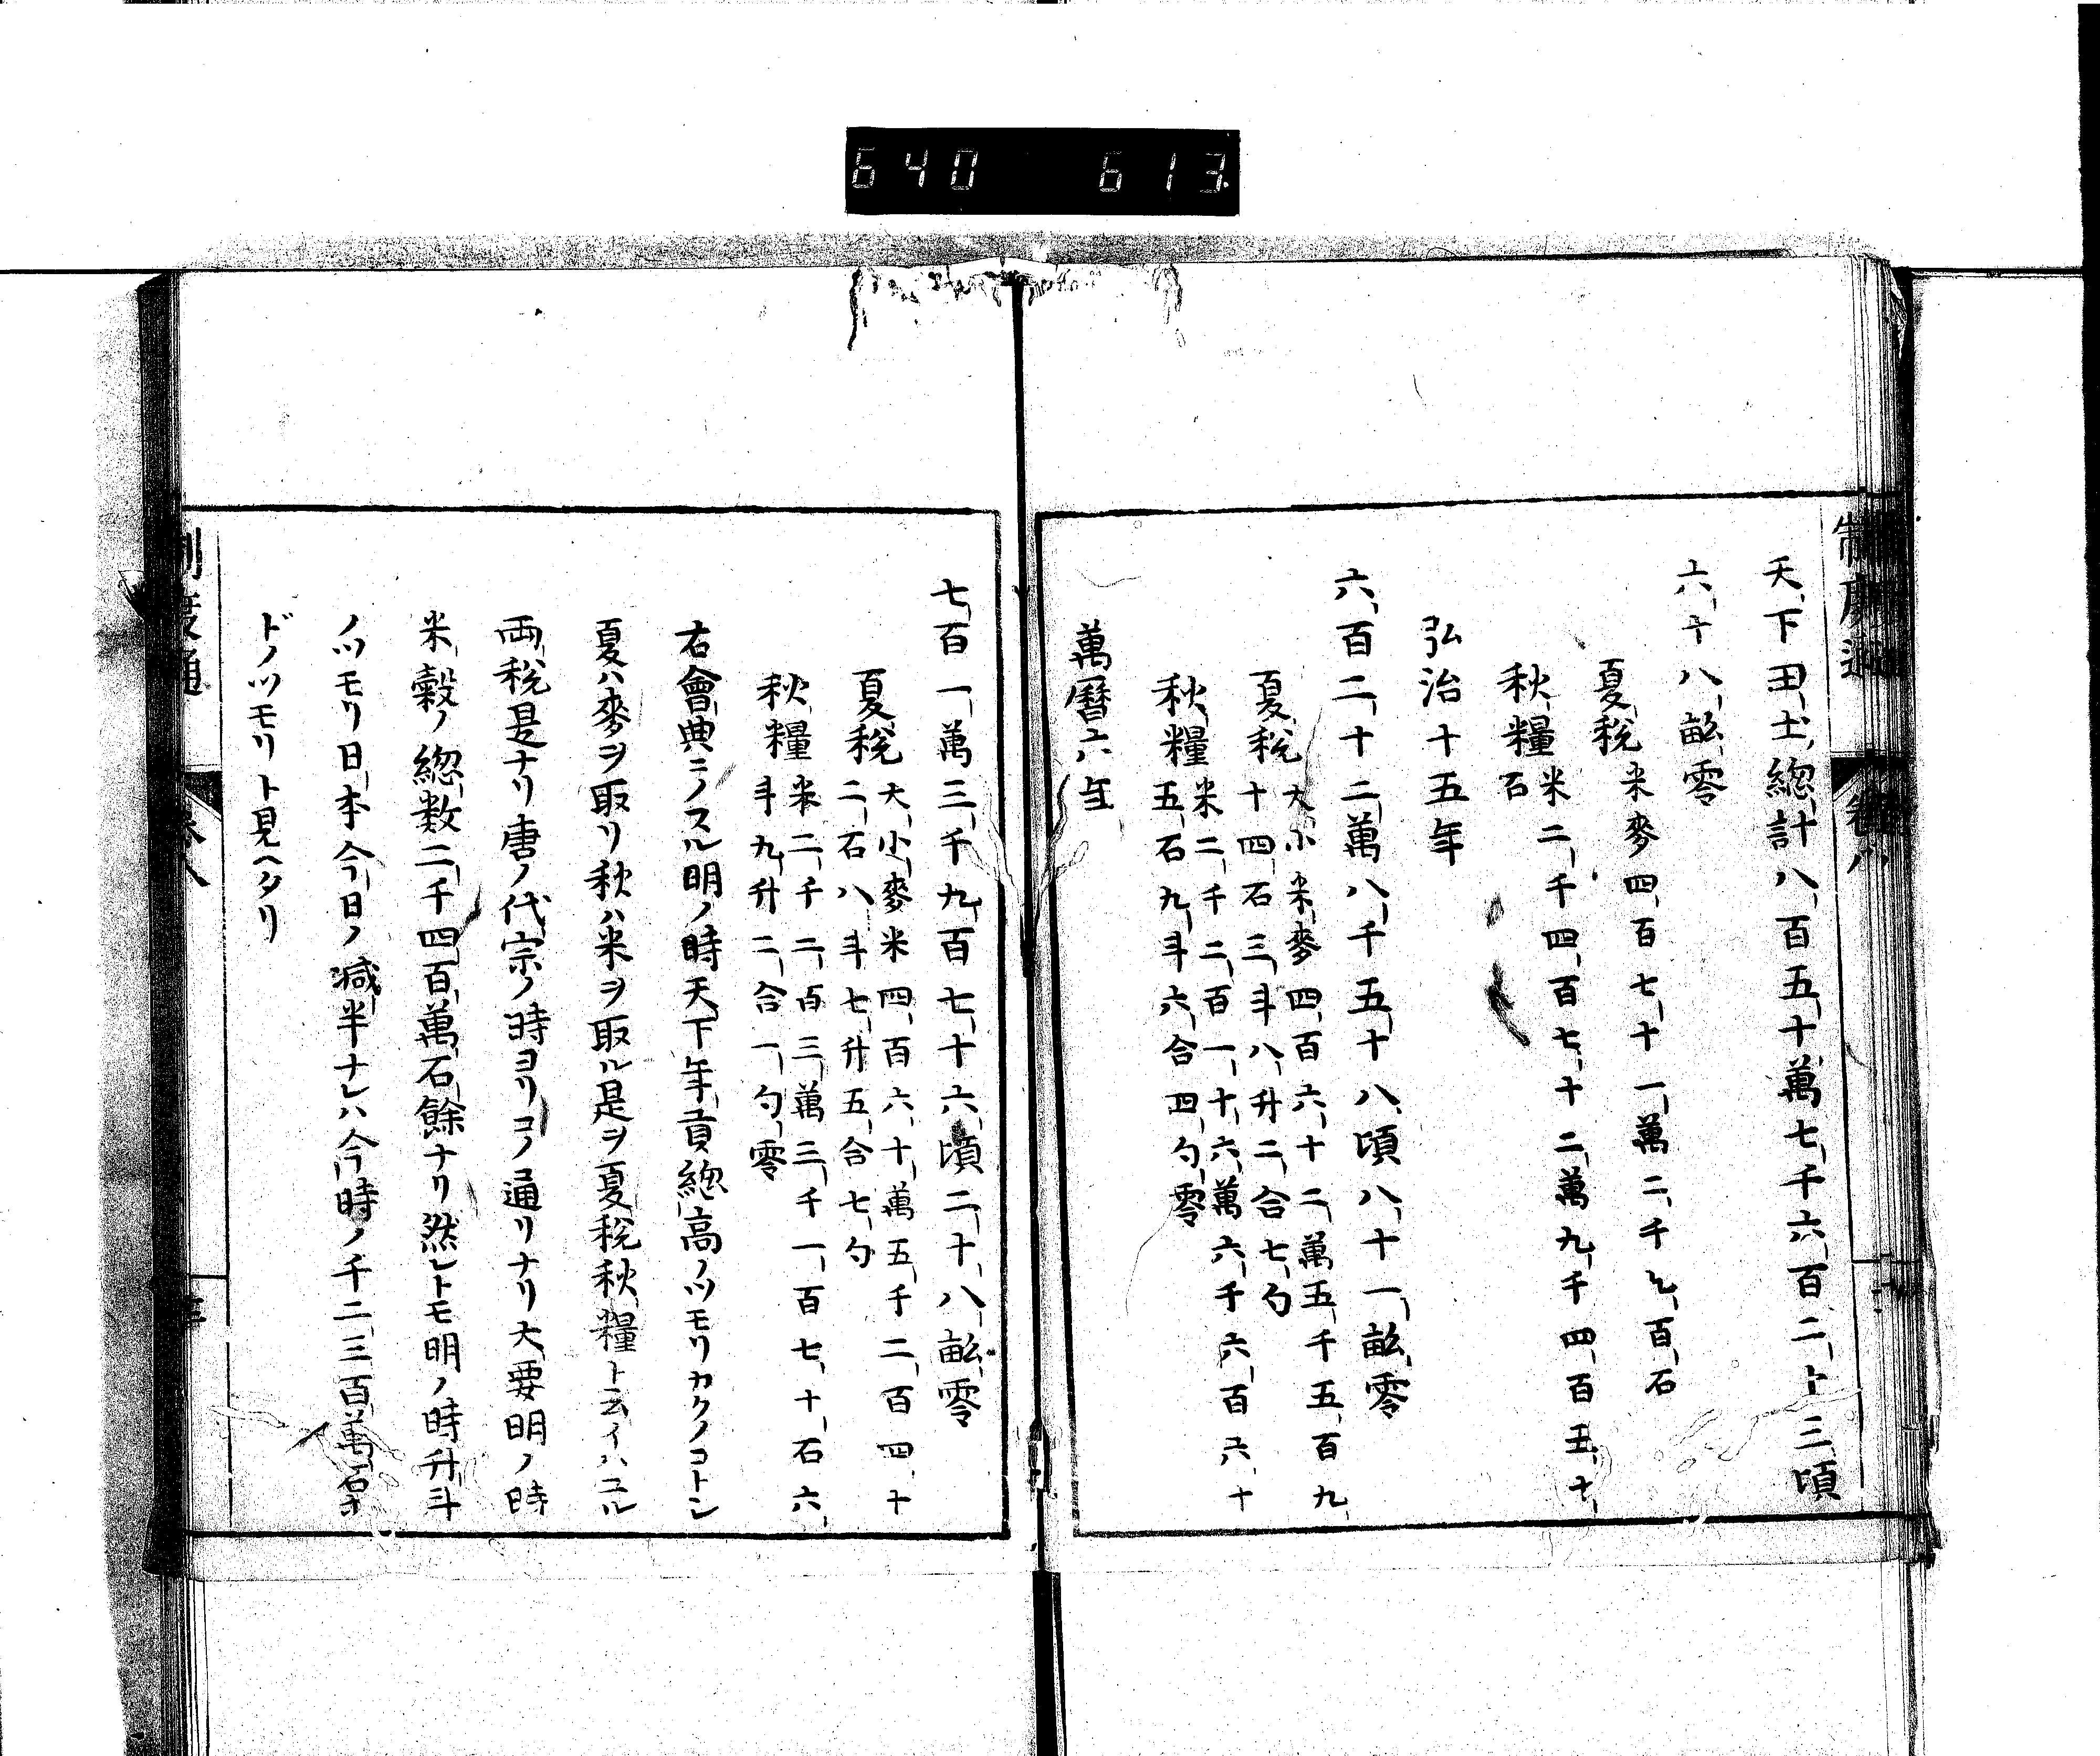 640 613
制度通 卷八
天下田土總計八百五十萬七千六百二十三頃
六十八畝零
夏稅米麥四百七十一萬二千七百石
秋糧米二千四百七十二萬九千四百五十
石
弘治十五年
六百二十二萬八千五十八頃八十一畝零
夏稅大小米麥四百六十二萬五千五百九
十四石三斗八升二合七勺
秋糧米二千二百一十六萬六千六百六十
五石九斗六合四勺零
萬曆六年
七百一萬三千九百七十六頃二十八畝零
夏稅大小麥米四百六十萬五千二百四十
二石八斗七升五合七勺
秋糧米二千二百三萬三千一百七十石六
斗九升二合一勺零
右會典ニノスル明ノ時天下年貢總高ノツモリカクノコトシ
夏ハ麥ヲ取リ秋ハ米ヲ取ル是ヲ夏稅秋糧ト云イハユル
兩稅是ナリ唐ノ代宗ノ時ヨリコノ通リナリ大要明ノ時
米穀ノ總数二千四百萬石餘ナリ然レトモ明ノ時升斗
ノツモリ日本今日ノ減半ナレハ今時ノ千二三百萬石ホ
ドノツモリト見ヘタリ
制度通 卷八